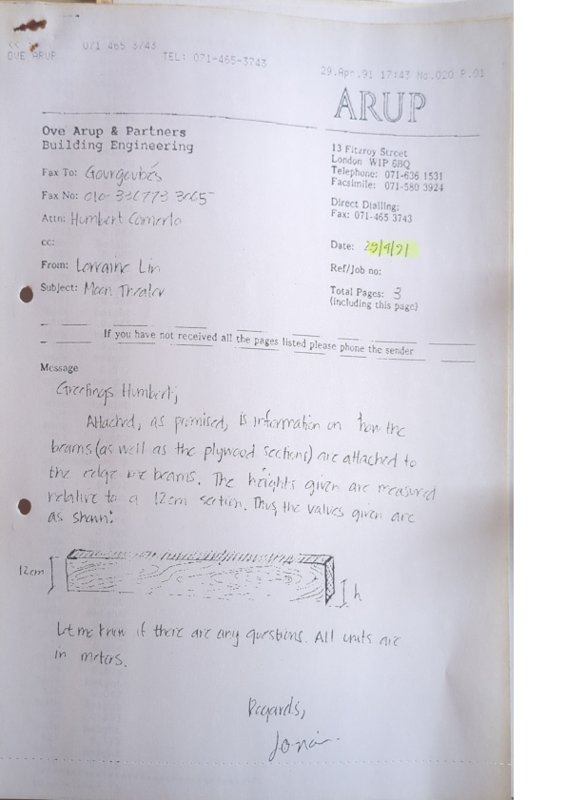 071 465 3743
OVE ARUP
TEL: 071-465-3743
29.Apr.91 17:43 No.020 P.01
ARUP
Ove Arup & Partners
Building Engineering
13 Fitzroy Street
London W1P 6BQ
Telephone: 071-636 1531
Facsimile: 071-580 3924
Direct Dialling:
Fax: 071-465 3743
Fax To: Gourgoubès
Fax No: 010-336773 3065
Attn: Humbert
cc:
From: Lorraine Lin
Subject: Moon Theater
Date: 29/4/91
Ref/Job no:
Total Pages: 3
(including this page)
If you have not received all the pages listed please phone the sender
Message
Greetings Humbert,
Attached, as promised, is information on how the
beams (as well as the plywood sections) are attached to
the edge beams. The heights given are measured
relative to a 12cm section. Thus, the values given are
as shown:
12cm
h
Let me know if there are any questions. All units are
in meters.
Regards,